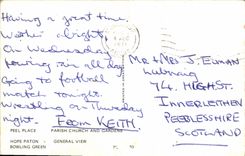 Having a great time.
Weather bright,
On Wednesday
pouring rain all day
Going to football
match tonight.
Wrestling on Thursday
night. From KEITH
Mr & Mrs J. Euman
74. HIGH ST.
INNERLEITHEN
PEEBLESSHIRE
SCOTLAND
PEEL PLACE PARISH CHURCH AND GARDENS
HOPE PATON GENERAL VIEW
BOWLING GREEN